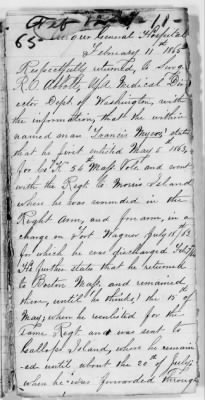 65
General Hospital
February 11th 1865
Respectfully returned, to Surg.
R. O. Abbott, USA Medical Dir-
ector Dept. of Washington, with
the information, that the within
named man "Francis Myers" states
that he first enlisted May 5 1863,
for Co "K" 54th Mass Vols. and went
with the Regt to Morris Island
where he was wounded in the
Right Arm, and forearm, in a
charge on Fort Wagner July 18/63
for which he was discharged
He further states that he returned
to Boston Mass and remained
there, until (he thinks) the 15th of
May; when he reenlisted for the
Same Regt and was sent to
Gallops Island, where he remain-
ed until about the 20th of July
when he was forwarded through